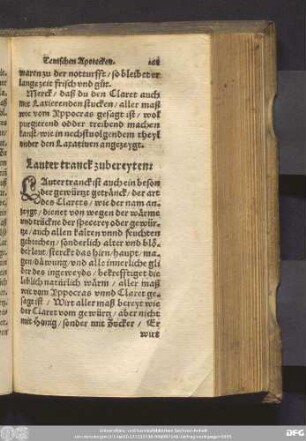 Teutschen Apotecken. 101
waren zu der notturfft / so bleibet er
lange zeit frisch vnd gůt.
Merck / daß du den Claret auch
mit Laxierenden stucken / aller maß
wie vom Yppocras gesagt ist / wol
purgierend odder treibend machen
kanst / wie in nechstuolgendem theyl
vnder den Laxatiuen angezeygt.
Lauter tranck zubereyten:
LAuter tranck ist auch ein beson
der gewürtzt getränck / der art
des Clarets / wie der nam an-
zeygt / dienet von wegen der wärme
vnd trückne der specerey oder gewür-
tze / auch allen kalten vnnd feuchten
gebrechen / sonderlich alter vnd blö-
der leut / sterckt das hirn / haupt / ma-
gen / däwung / vnd alle innerliche gli
der des ingeweyds / bekrefftiget die
leiblich natürlich wärm / aller maß
wie vom Yppocras vnnd Claret ge-
sagt ist / Wirt aller maß bereyt wie
der Claret vom gewürtz / aber nicht
mit Honig / sonder mit Zucker / Er
wirt